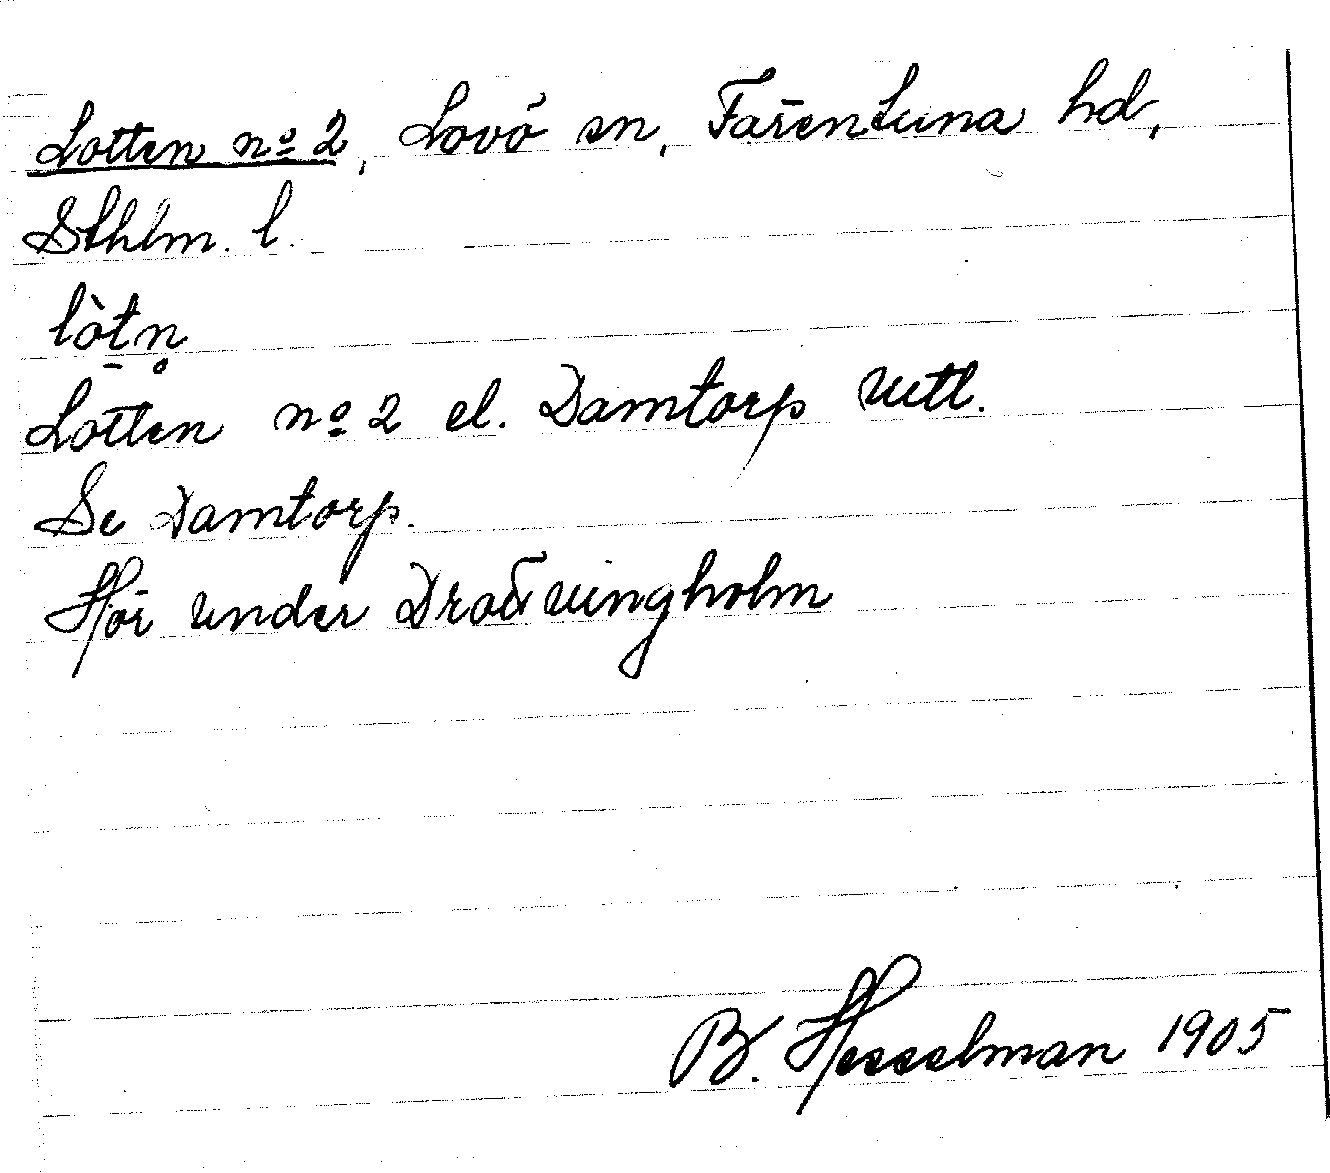 Lotten nº 2, Lovö sn, Färentuna hd,
Sthlm. l.
lòt̠n̥
Lotten nº 2 el. Damtorp utl.
Se Damtorp.
Hör under Drottningholm
B. Hesselman 1905